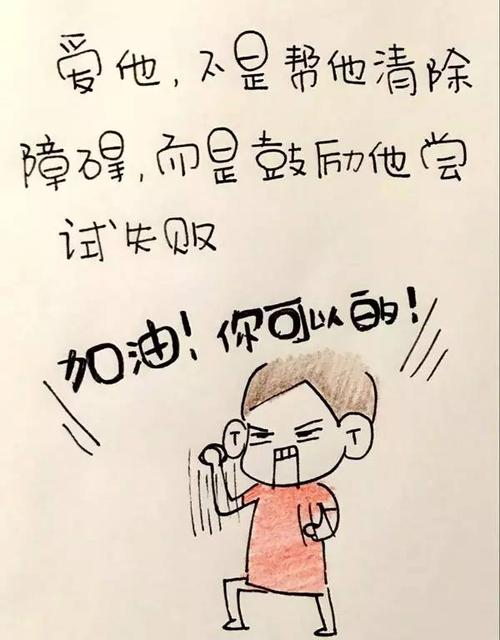 爱他，不是帮他清除
障碍，而是鼓励他尝
试失败
加油！你可以的！